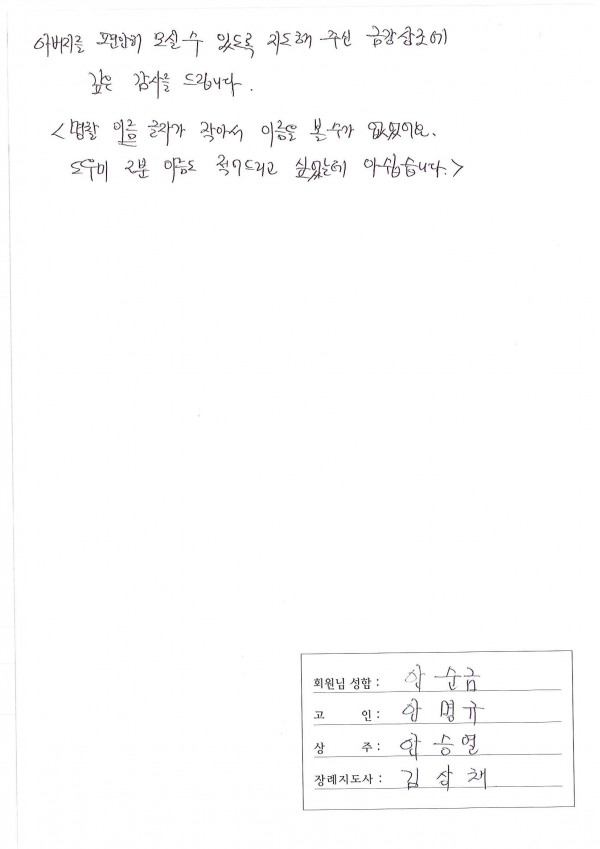 아버지를 편안히 모실 수 있도록 지도해 주신 금강상조에
깊은 감사를 드립니다.
<명찰 이름 글자가 작아서 이름을 볼 수가 없었어요.
도우미 2분 이름도 적어드리고 싶었는데 아쉽습니다.>
회원님 성함 : 안 순금
고 인 : 안 명규
상 주 : 안 승열
장례지도사 : 김 상 채